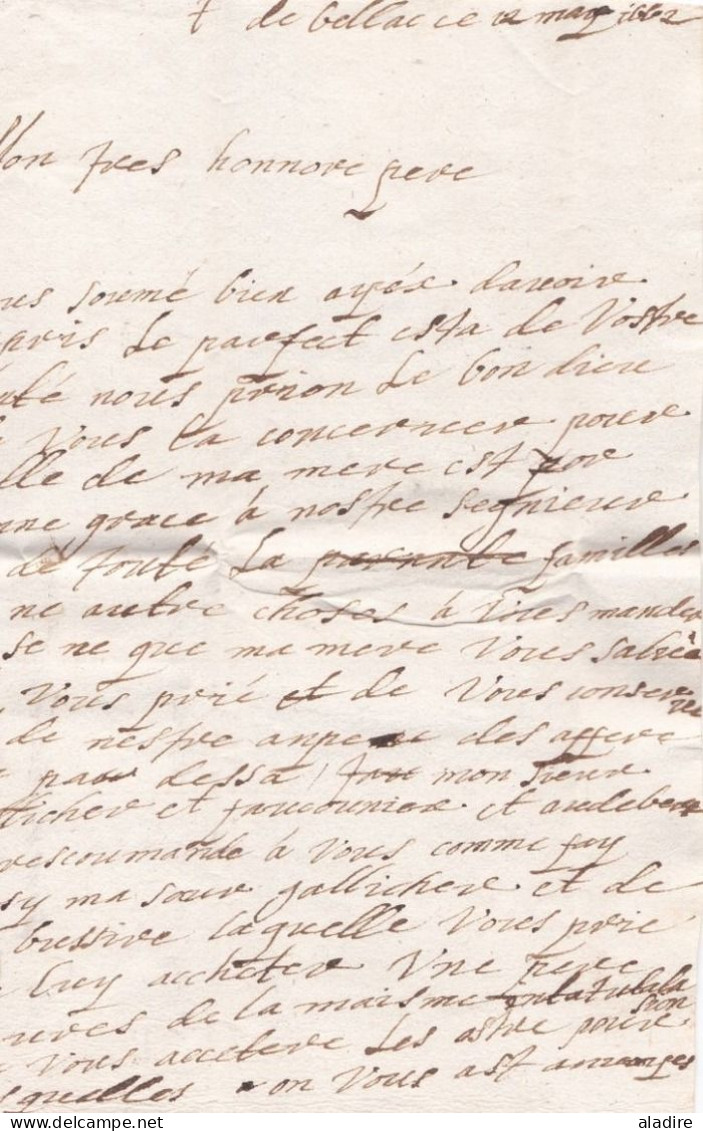 + de bellac ce 12 may 1662
Mon tres honnore pere
ous somé bien ayéx davoire
pris Le parfect esta de Vostre
nté nous prion Le bon dieu
Vous La concerver pour
lle de ma mere est por
nne grace à nostre segnieur
de toute La parante familles
ne autre choses à Vous mander
se ne que ma mere Vous salue
Vous prié et de Vous conser
ver
de nestre anpene des affere
par dessa mon sieur
llicher et faucouniex et audeber
rescoumande à Vous comme fay
sy ma sœur gallicher et de
bussire laquelle Vous prie
luy accheter Vne pere
ures de la maisme
sion
Vous accetere Les astre pour
squelles on Vous ast
aladire